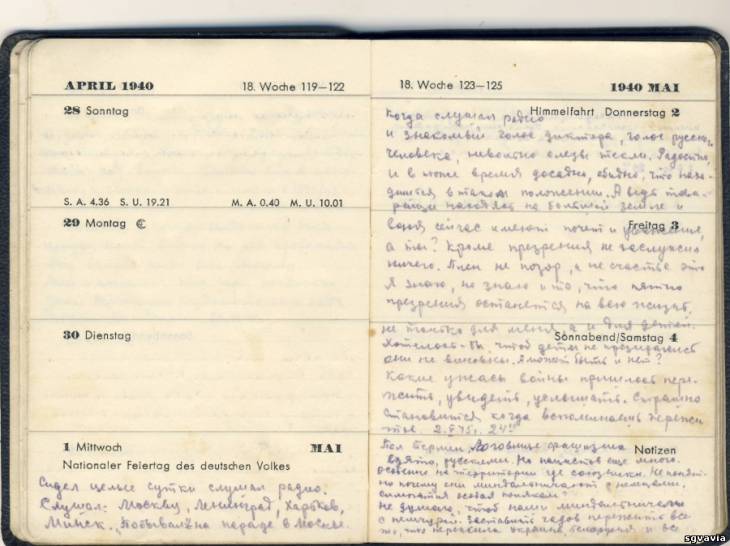 APRIL 1940 18. Woche 119—122
28 Sonntag
S. A. 4.36 S. U. 19.21 M. A. 0.40 M. U. 10.01
29 Montag ☾
30 Dienstag
1 Mittwoch MAI
Nationaler Feiertag des deutschen Volkes
Сидел целые сутки слушал радио.
Слушал: Москву, Ленинград, Харьков,
Минск. Побывал на параде в Москве.
18. Woche 123—125 1940 MAI
Himmelfahrt Donnerstag 2
Когда слушал радио
и знакомый голос диктора, голос русского
человека, невольно слезы текли. Радостно,
и в тоже время досадно, обидно, что нахо-
дишься в таком положении. А ведь това-
рищи находятся на большой земле и
Freitag 3
сейчас имеют почет и уважение,
а ты? Кроме презрения не заслужено
ничего. Плен не позор, а не счастье это
я знаю, но знаю и то, что пятно
презрения останется на всю жизнь,
не только для меня, а и для детей.
Sonnabend/Samstag 4
Хотелось-бы чтоб детей не презирали
они не виновны. А может быть и нет?
Какие ужасы войны пришлось пере-
жить, увидеть, услышать. Страшно
становится когда вспоминаешь пережи-
тое. 2.V 45г.
Notizen
Пал Берлин. Логовище фашизма
взято, русскими. Но нацистов еще много.
особенно на территории где союзники. Не понят-
но почему они миндальничают с немцами.
симпатия особая
Не думаю, чтоб наши миндальничали
с
то, что пережила украина белоруссия и все
sgvavia